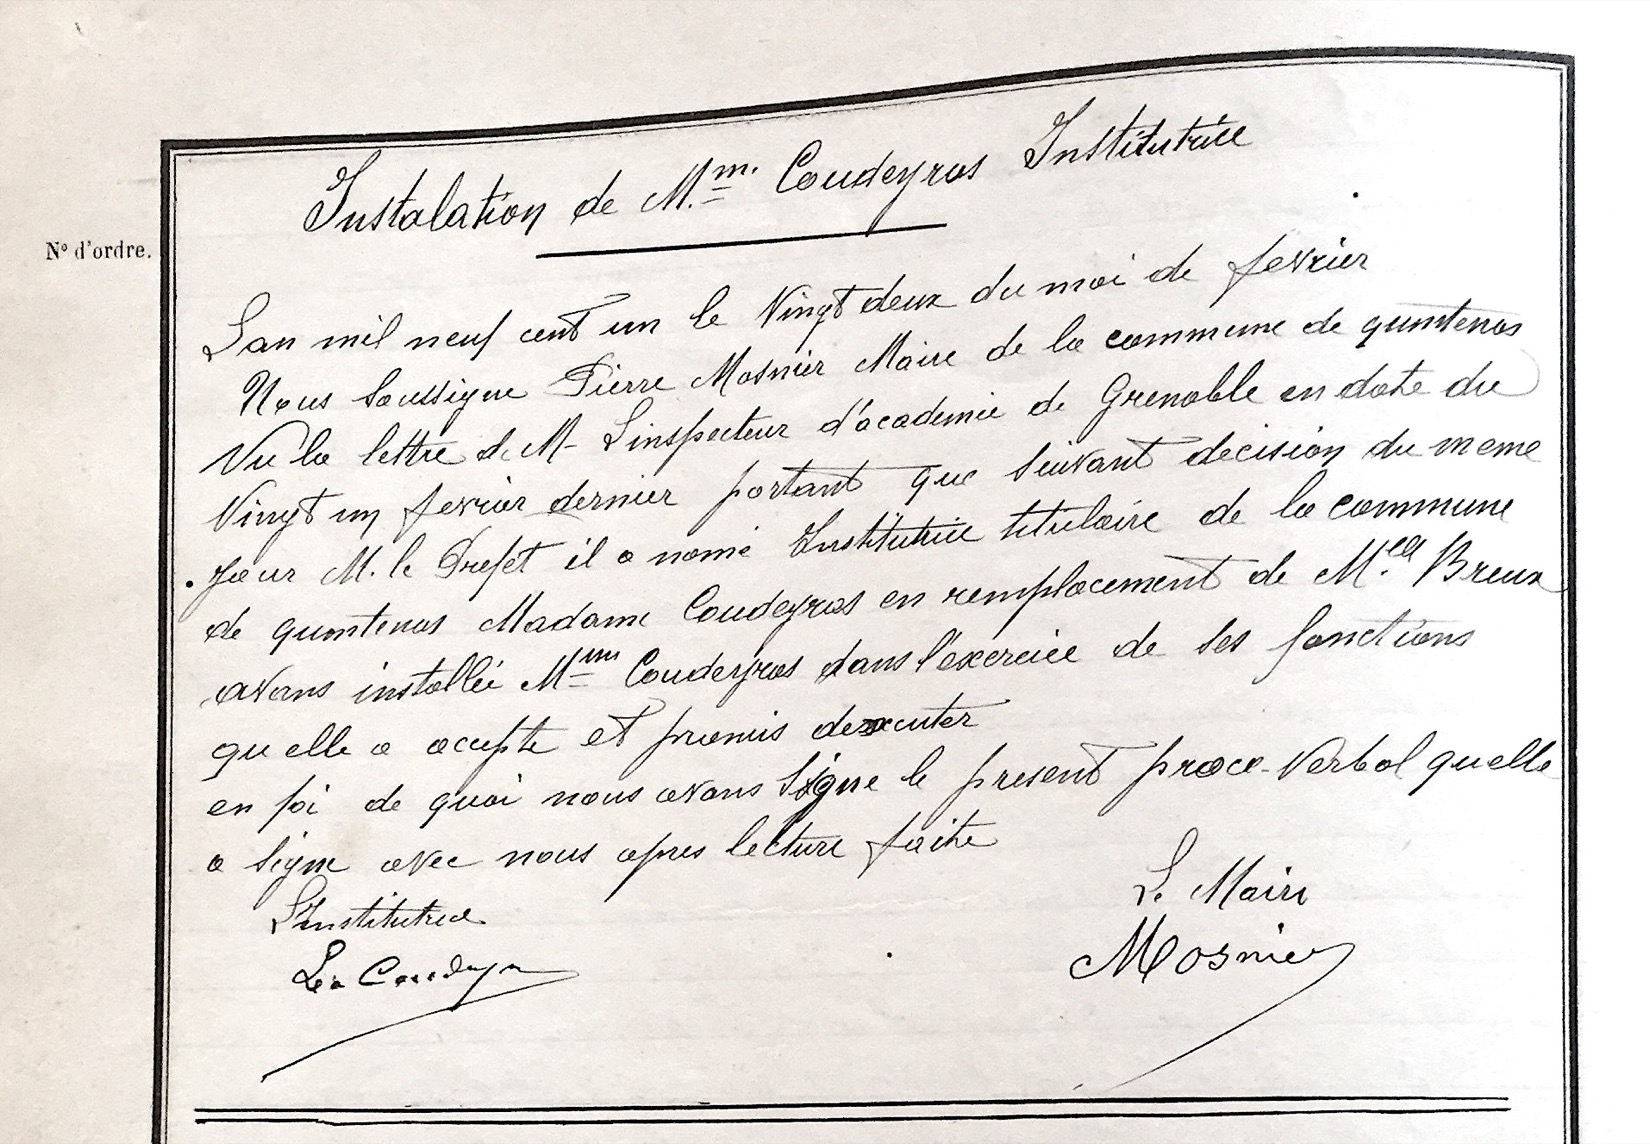 Instalation de M.m. Coudeyras Institutrice
N° d'ordre.
Lan mil neuf cent un le Vingt deux du moi de fevrier
Nous Soussigne Pierre Mosnier Maire de la commune de quintenas
Vu la lettre de M- Linspecteur d'academie de Grenoble en date du
Vingt un fevrier dernier portant que suivant decision du meme
jour M. le Prefet il a nomé Institutrice titulaire de la commune
de quintenas Madame Coudeyras en remplacement de M.elle Breux
avons installée Mme Coudeyras dans l'exercice de ses fonctions
qu elle a acepte et promis dexecuter
en foi de quoi nous avons Signe le present proce-Verbal quelle
a Signe avec nous apres lecture faite
L'Institutrice
Le Maire
Mosnier